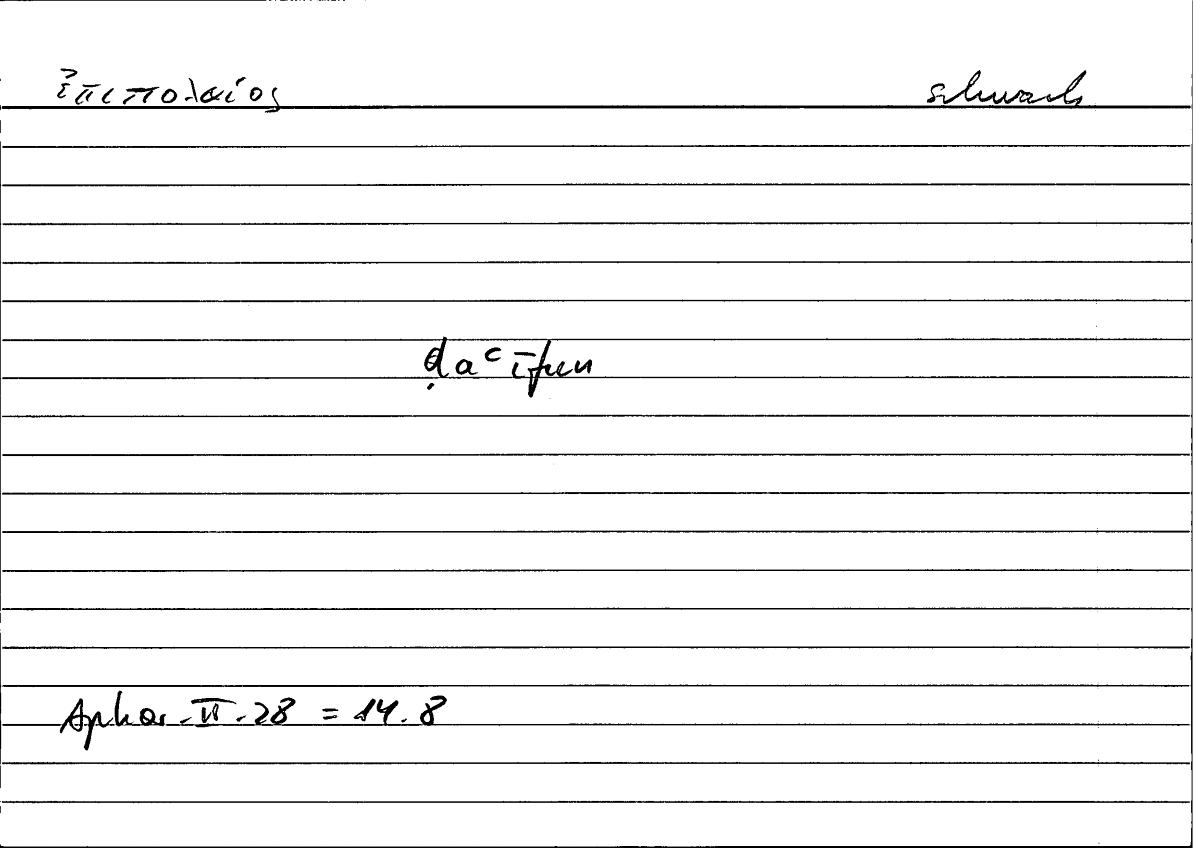 ἐπιπολαίος schwach
ḍaʿīfun
Aphor. II. 28 = 14.8